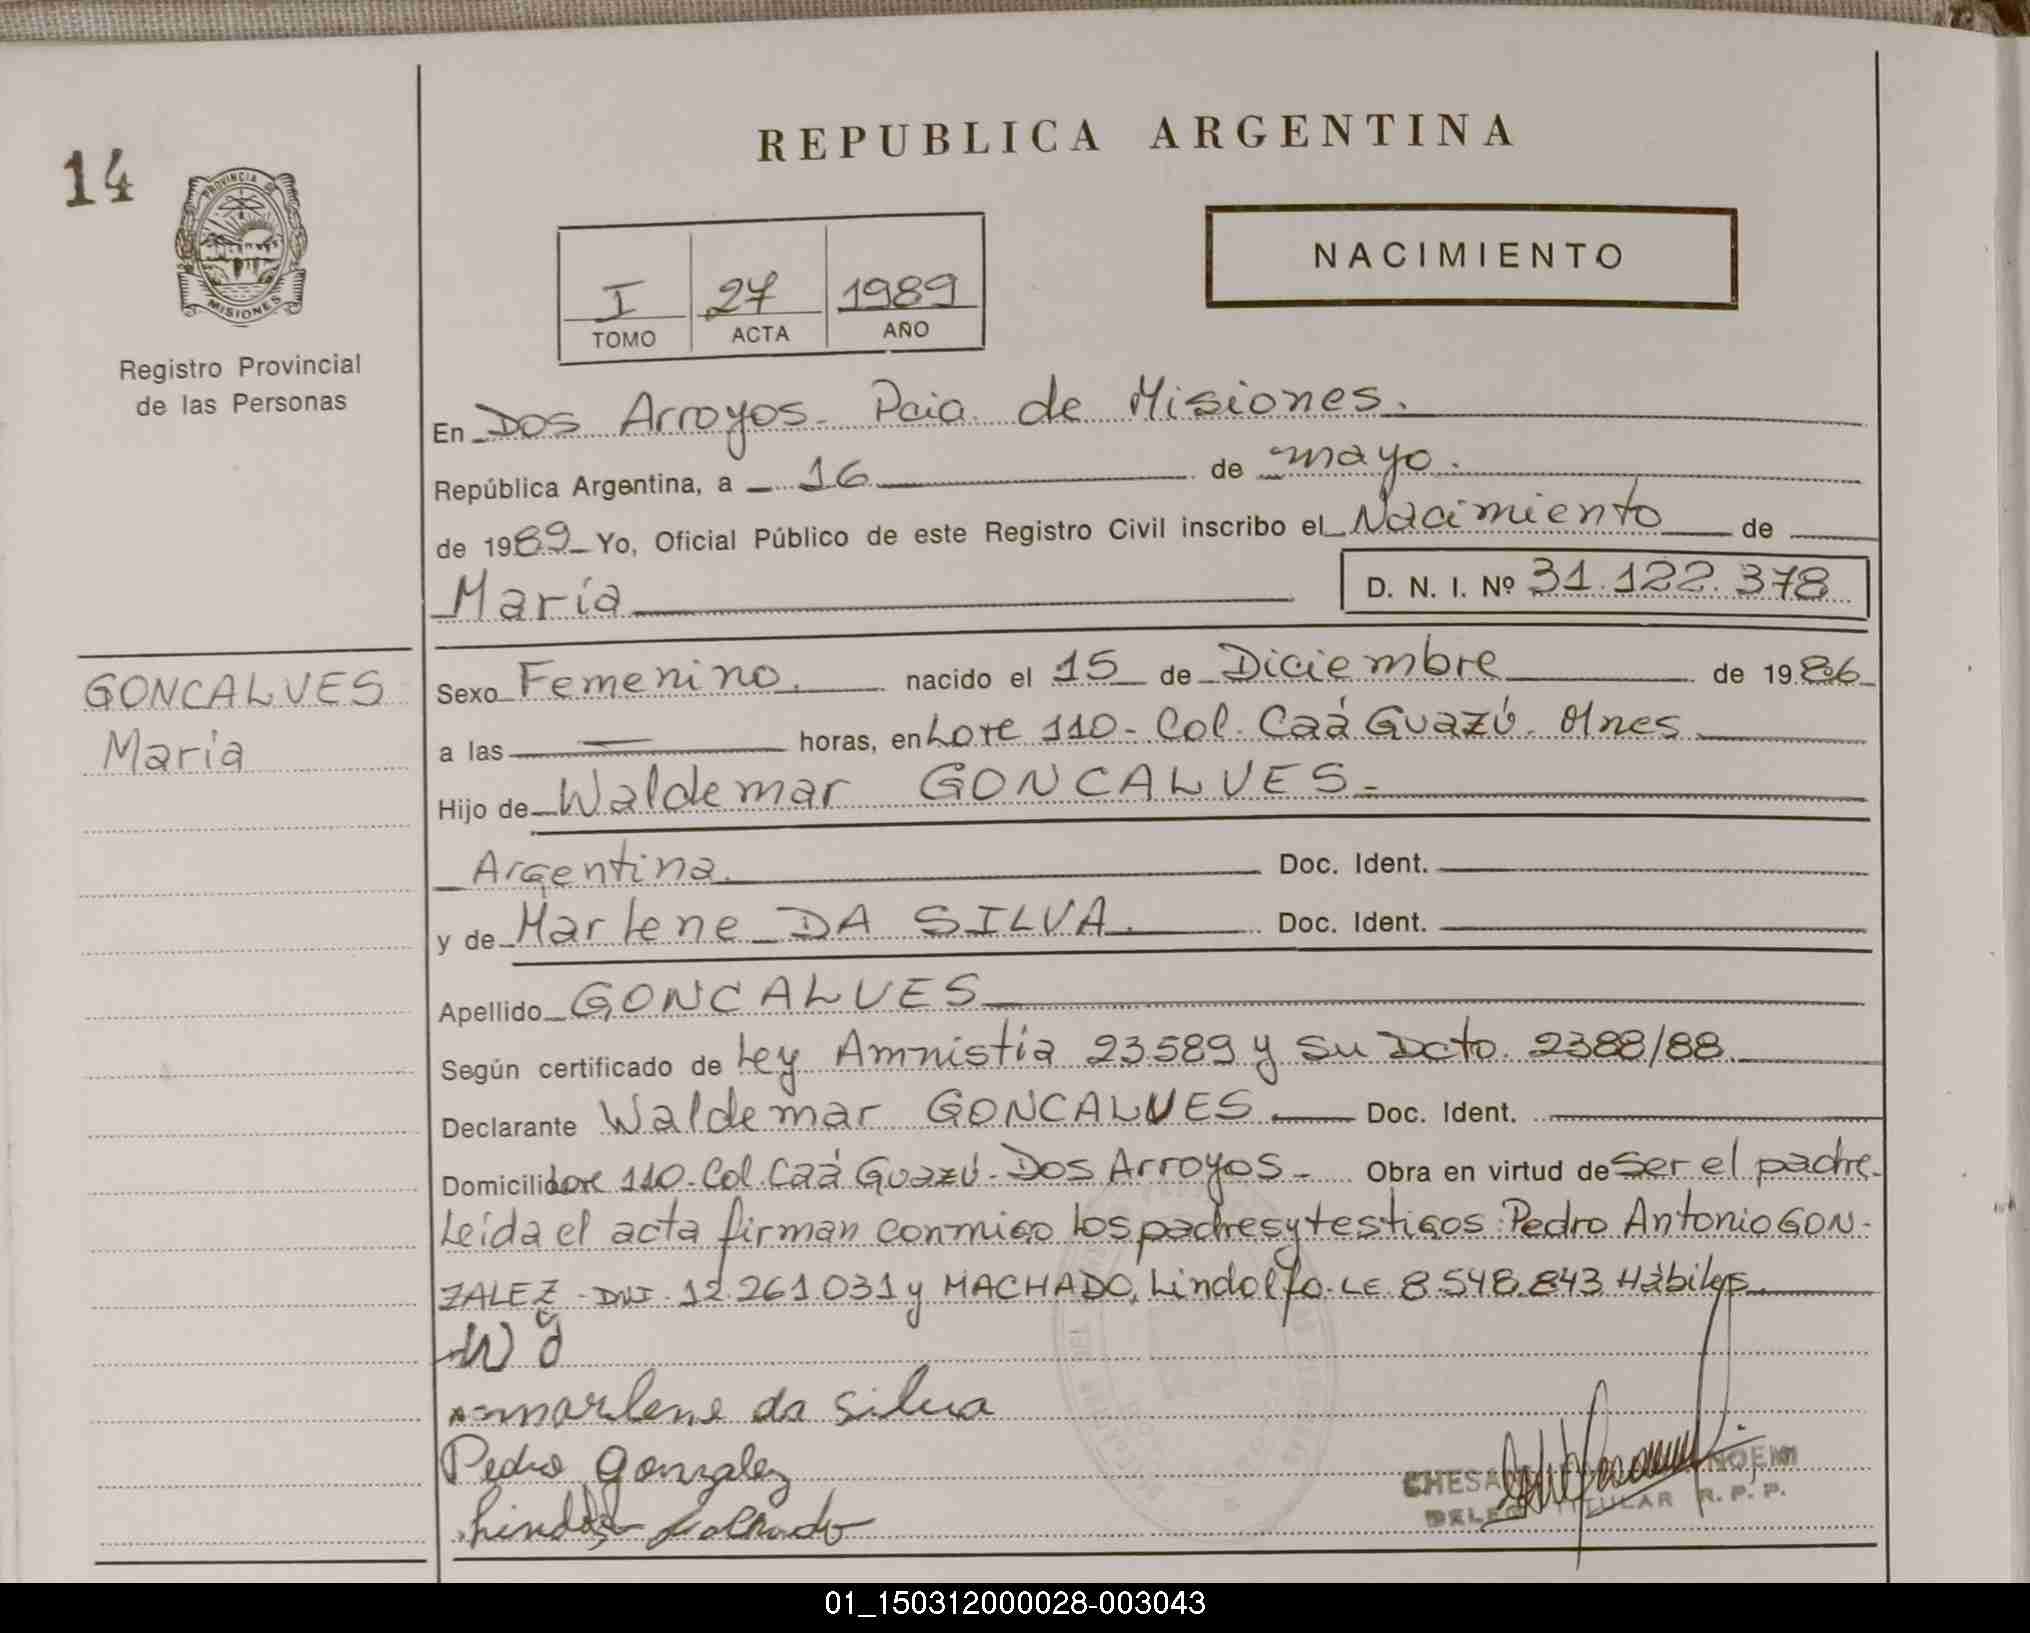 14
REPUBLICA ARGENTINA
PROVINCIA DE
MISIONES
Registro Provincial
de las Personas
I 27 1989
TOMO ACTA AÑO
NACIMIENTO
En Dos Arroyos. Pcia. de Misiones.
República Argentina, a 16 de mayo.
de 1989 Yo, Oficial Público de este Registro Civil inscribo el Nacimiento de
María D. N. I. Nº 31.122.378
GONCALVES
María
Sexo Femenino. nacido el 15 de Diciembre de 1986
a las — horas, en Lote 110 - Col. Caá Guazú. Mnes
Hijo de Waldemar GONCALVES.-
Argentina. Doc. Ident.
y de Marlene DA SILVA. Doc. Ident.
Apellido GONCALVES
Según certificado de Ley Amnistía 23589 y su Dcto. 2388/88.
Declarante Waldemar GONCALVES. Doc. Ident.
Domicilio Lote 110-Col. Caá Guazú-Dos Arroyos- Obra en virtud de ser el padre.
Leída el acta firman conmigo los padres y testigos: Pedro Antonio GON-
ZALEZ - DNI. 12.261.031 y MACHADO, Lindolfo. LE 8.548.843 Hábiles.
marlene da silva
Pedro Gonzalez
CHESA NOEMI
DELEG TULAR R. P. P.
01_150312000028-003043